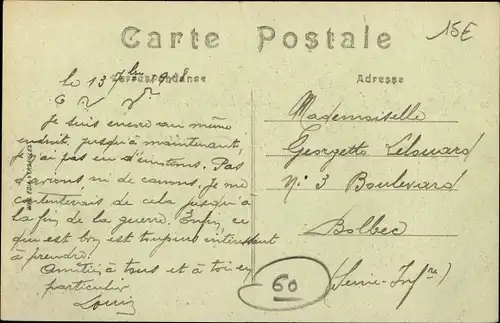 15E
Carte Postale
Correspondance
Adresse
le 13 7bre 1918
Je suis encore au même
endroit, jusqu'à maintenant,
je n'ai pas eu d'
Pas
d'avions ni de canons, je me
contenterais de cela jusqu'à
la fin de la guerre. Enfin, ce
qui est bon est toujours intéressant
à prendre.
Amitiés à tous et à toi en
particulier
Louis
Mademoiselle
Georgette Lelouard
N° 3 Boulevard
Bolbec
(Seine-Infre)
60